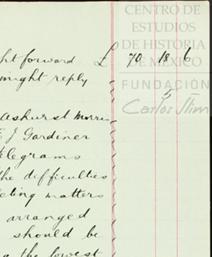 CENTRO DE
ESTUDIOS
DE HISTORIA
DE MÉXICO
FUNDACIÓN
Carlos Slim
ht forward £ 70 18 6
might reply
ashurst Morris
J Gardiner
elegrams
the difficulties
cting matters
arranged
should be
the lowest